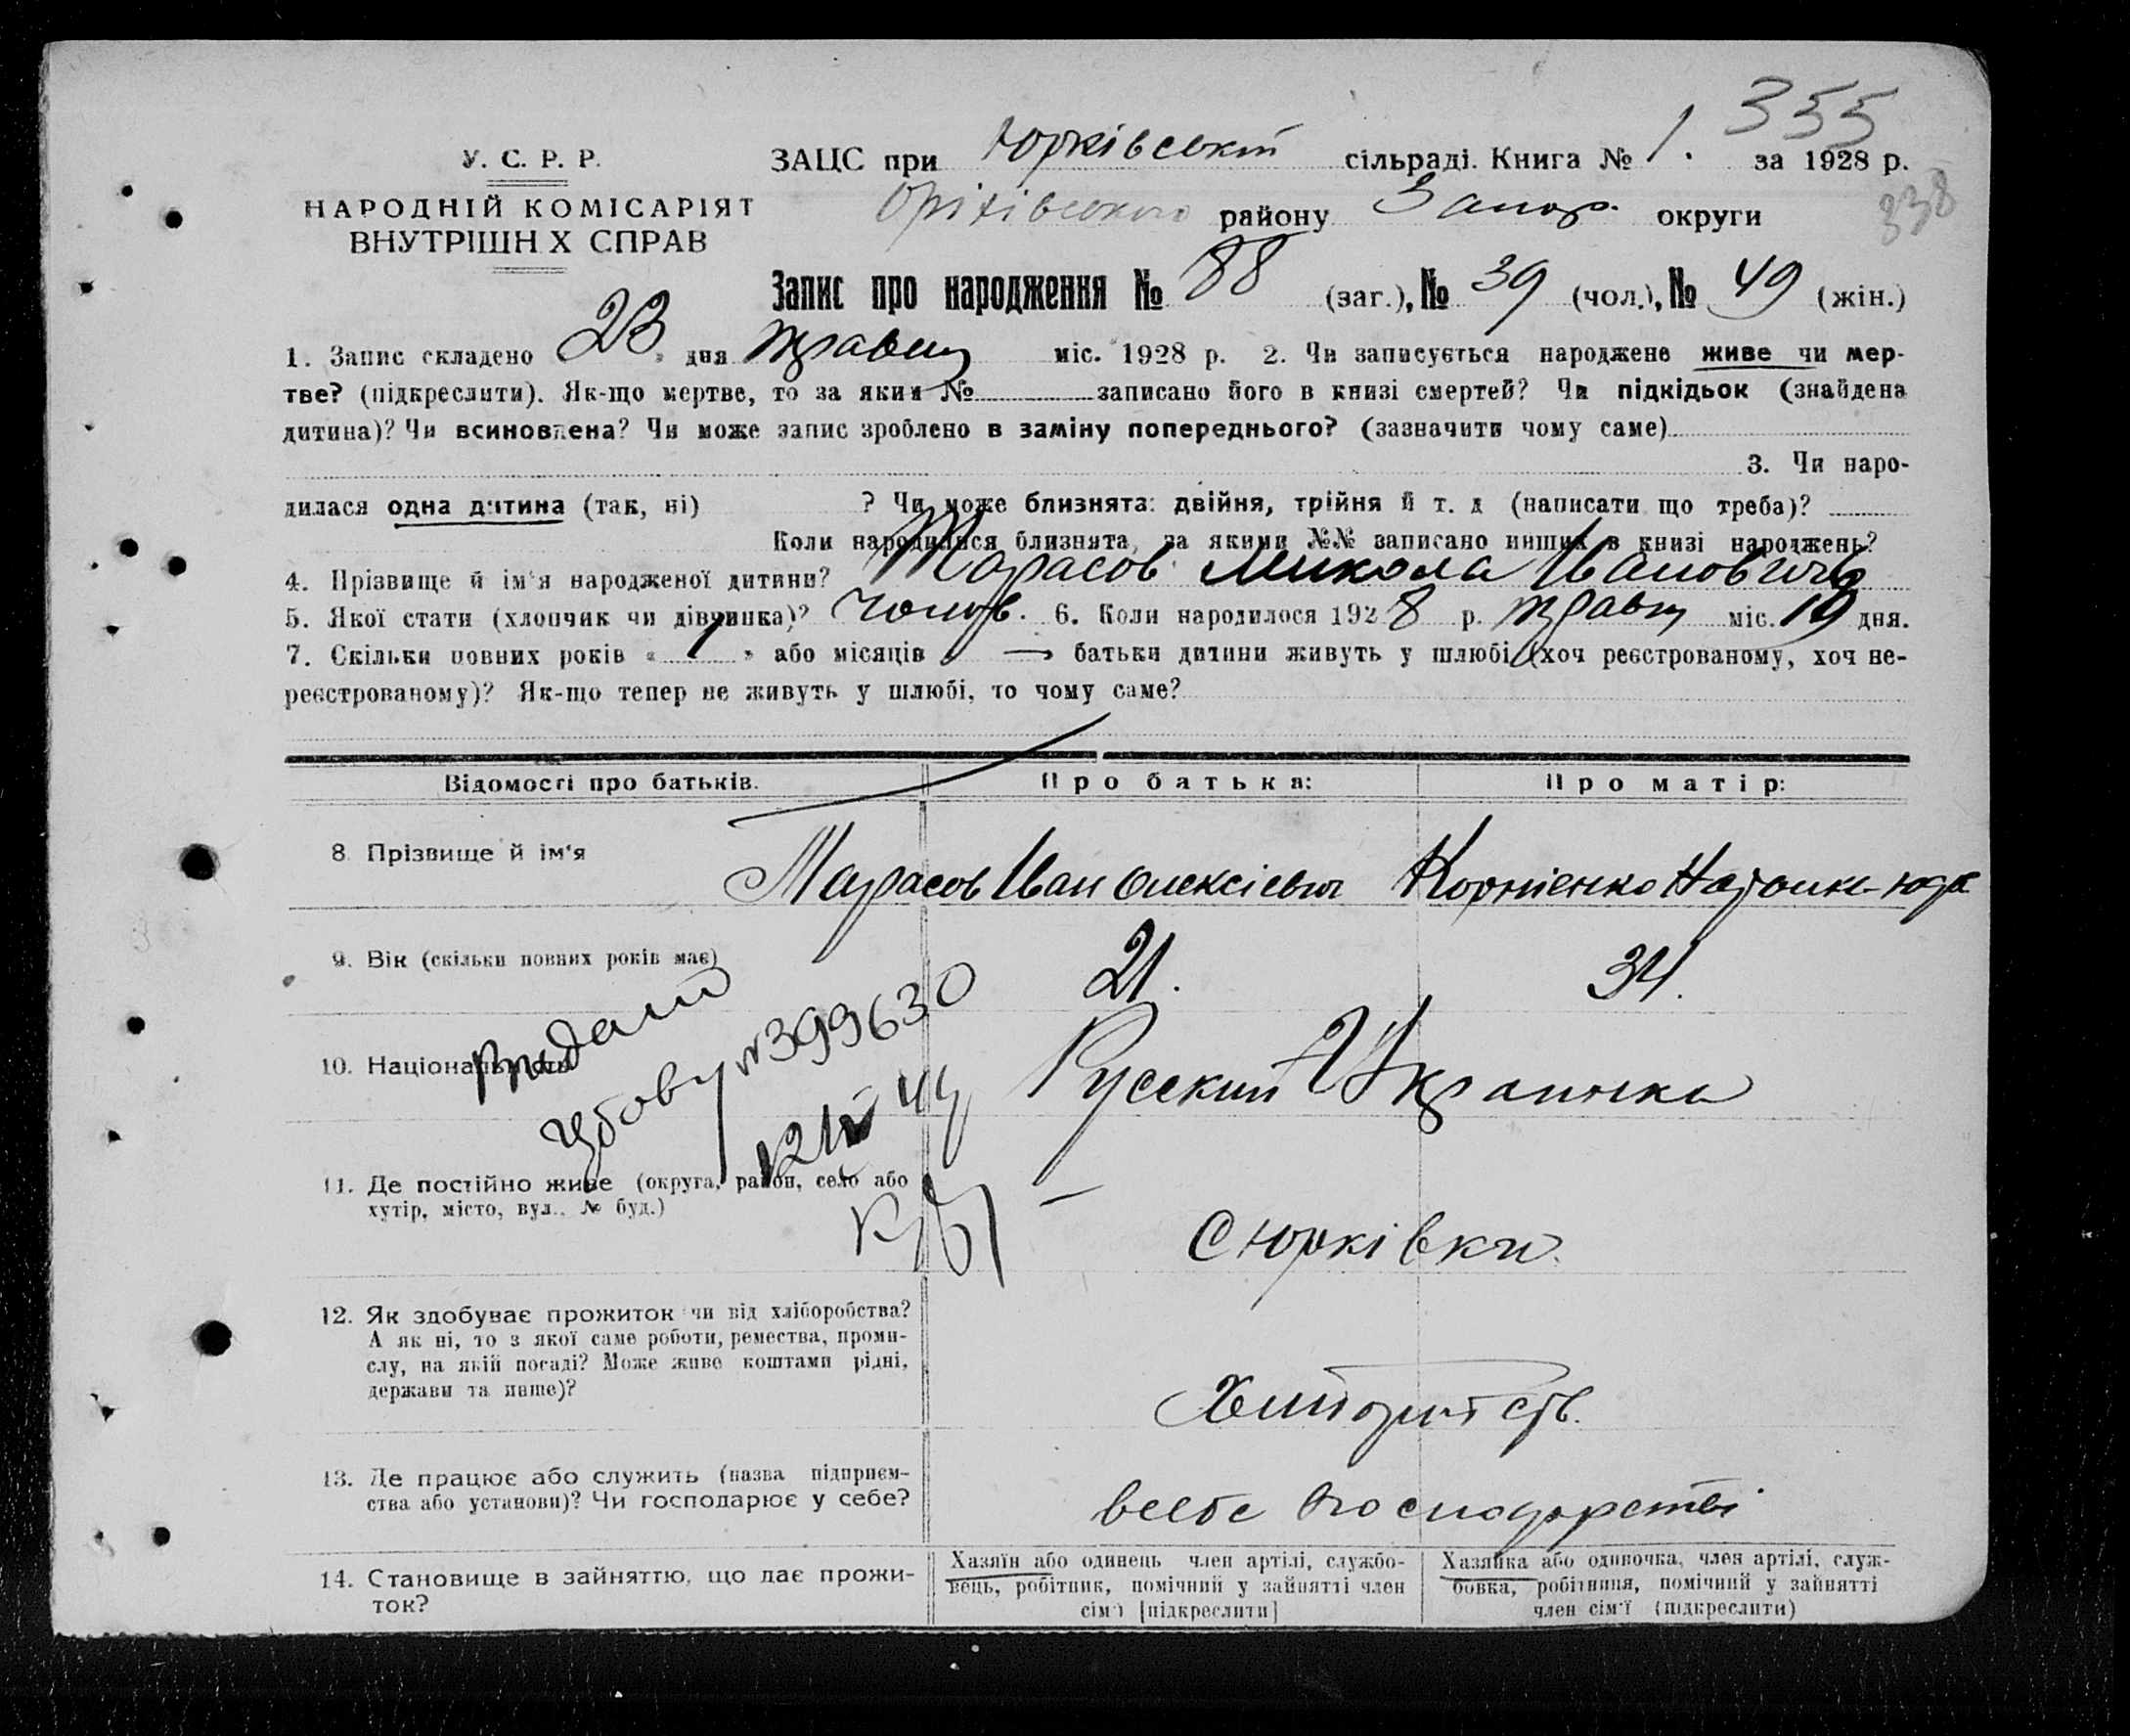 355
У. С. Р. Р.
ЗАЦС при Юрківській сільраді. Книга № 1. за 1928 р.
338
НАРОДНІЙ КОМІСАРІЯТ
ВНУТРІШН Х СПРАВ
Оріхівського району Запор. округи
Запис про народження № 88 (заг.), № 39 (чол.), № 49 (жін.)
1. Запис складено 23 дня травня міс. 1928 р. 2. Чи записується народжене живе чи мер-
тве? (підкреслити). Як-що мертве, то за яким № записано його в книзі смертей? Чи підкідьок (знайдена
дитина)? Чи всиновлена? Чи може запис зроблено в заміну попереднього? (зазначити чому саме)
3. Чи наро-
дилася одна дитина (так, ні) ? Чи може близнята: двійня, трійня й т. д (написати що треба)?
Коли народилися близнята, за якими №№ записано инших в книзі народжень?
4. Прізвище й ім'я народженої дитини? Тарасов Микола Іванович
5. Якої стати (хлопчик чи дівчинка)? чолов. 6. Коли народилося 1928 р. травня міс. 19 дня.
7. Скільки повних років « 1 » або місяців — батьки дитини живуть у шлюбі (хоч реєстрованому, хоч не-
реєстрованому)? Як-що тепер не живуть у шлюбі, то чому саме?
Відомості про батьків. Про батька: Про матір:
8. Прізвище й ім'я Тарасов Іван Олексієвич Корнієнко
9. Вік (скільки повних років має) 21. 34.
10. Національність Русский Украинка
Видано
№ 399630
11. Де постійно живе (округа, район, село або
хутір, місто, вул., № буд.)
С Юрківка
12. Як здобуває прожиток чи від хліборобства?
А як ні, то з якої саме роботи, ремества, проми-
слу, на якій посаді? Може живе коштами рідні,
держави та инше)?
13. Де працює або служить (назва підприєм-
ства або установи)? Чи господарює у себе?
всебе господарстві
14. Становище в зайняттю, що дає прожи-
ток?
Хазяїн або одинець член артілі, службо-
вець, робітник, помічний у зайнятті член
сім'ї [підкреслити]
Хазяйка або одиночка, член артілі, служ-
бовка, робітниця, помічний у зайнятті
член сім'ї (підкреслити)